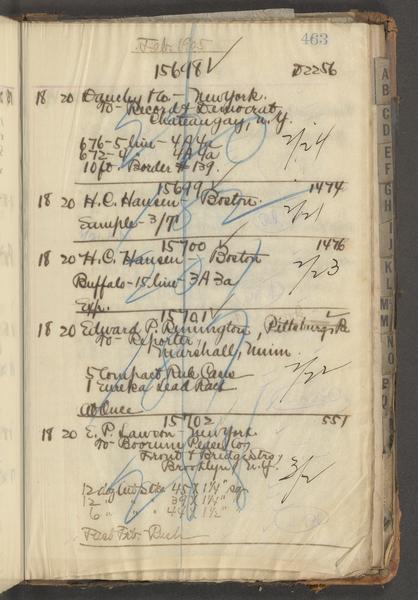 Feb. 1905 463
15698 D2256
18 20 Dauchy & Co. - New York.
To - Record & Democrat,
Chateaugay, N.Y.
676-5 line - 4A 4a
672-4 " 4A 4a 2/24
10 ft. Border # 139.
15699 1474
18 20 H.C. Hansen - Boston. 2/21
Sample - 3/
15700 1476
18 20 H.C. Hansen - Boston 2/23
Buffalo - 15 line - 3A 3a
Exp.
15701
18 20 Edward P. Remington, Pittsburgh
To - Reporter,
Marshall, Minn.
5 Compact Rule Case 2/22
1 Eureka Lead Rack
at Once
15702 551
18 20 E. P. Lawson - New York
To Boorum Pease Co,
Front & Bridge Sts,
Brooklyn, N.Y. 3/2
12 45 X 1 1/4"
12 " " 39 X 1 1/4" "
6 " " 44 X 1 1/2
Rush
A
B
C
D
E
F
G
H
I
J
K
L
M
M
N
O
P
Q